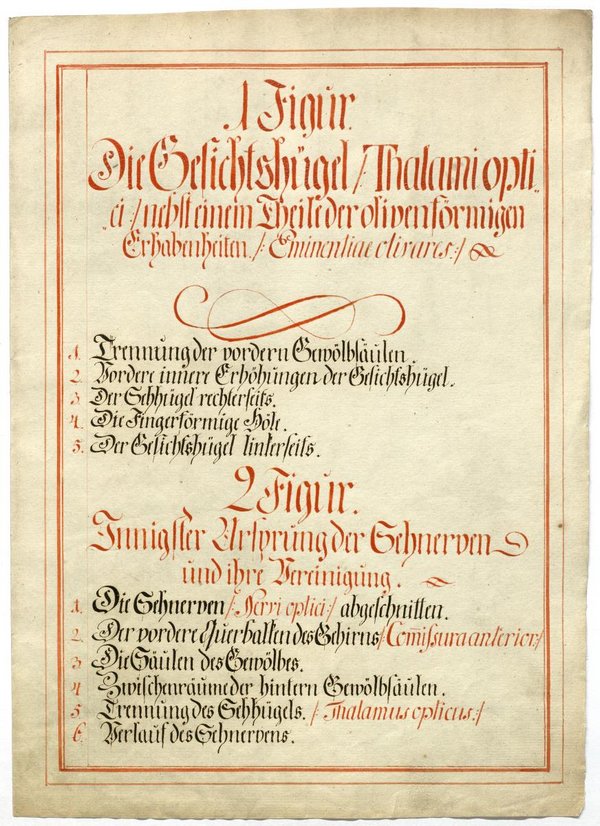 1 Figur.
Die Gesichtshügel /: Thalami opti-
ci :/ nebst einem Theile der olivenförmigen
Erhabenheiten. /: Eminentiae olivares :/
1. Trennung der vordern Gewölbsäulen.
2. Vordere innere Erhöhungen der Gesichtshügel.
3 Der Sehhügel rechterseits.
4. Die Fingerförmige Höle.
5. Der Gesichtshügel linkerseits.
2 Figur.
Innigster Ursprung der Sehnerven
und ihre Vereinigung.
1. Die Sehnerven /: Nervi optici :/ abgeschnitten.
2. Der vordere Querbalken des Gehirns /: Com̅issura anterior :/
3 Die Säulen des Gewölbes.
4 Zwischenräume der hintern Gewölbsäulen.
5 Trennung des Sehhügels. /: Thalamus opticus :/
6. Verlauf des Sehnervens.